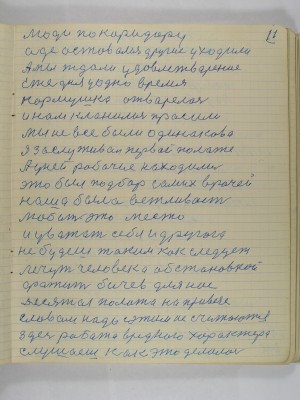 11
люди по каридору
а де оставался другие уходили
А мы ждали удовлетварение
Еже дня у одно время
кормушка отварелая
и нам кланились просили
мы не все были одинакова
Я заслуживал первой палате
Аудней рабочие находили
это был подбор самих врачей
наша была ветливаст
любить это место
и уважат себя и другога
не будеш таким как следует
лечут человека обстановкой
фатит бичев для нас
десятая полата на праверке
словам надо сэтим не считаются
здес работа вредного характера
слушаеш как это делалос